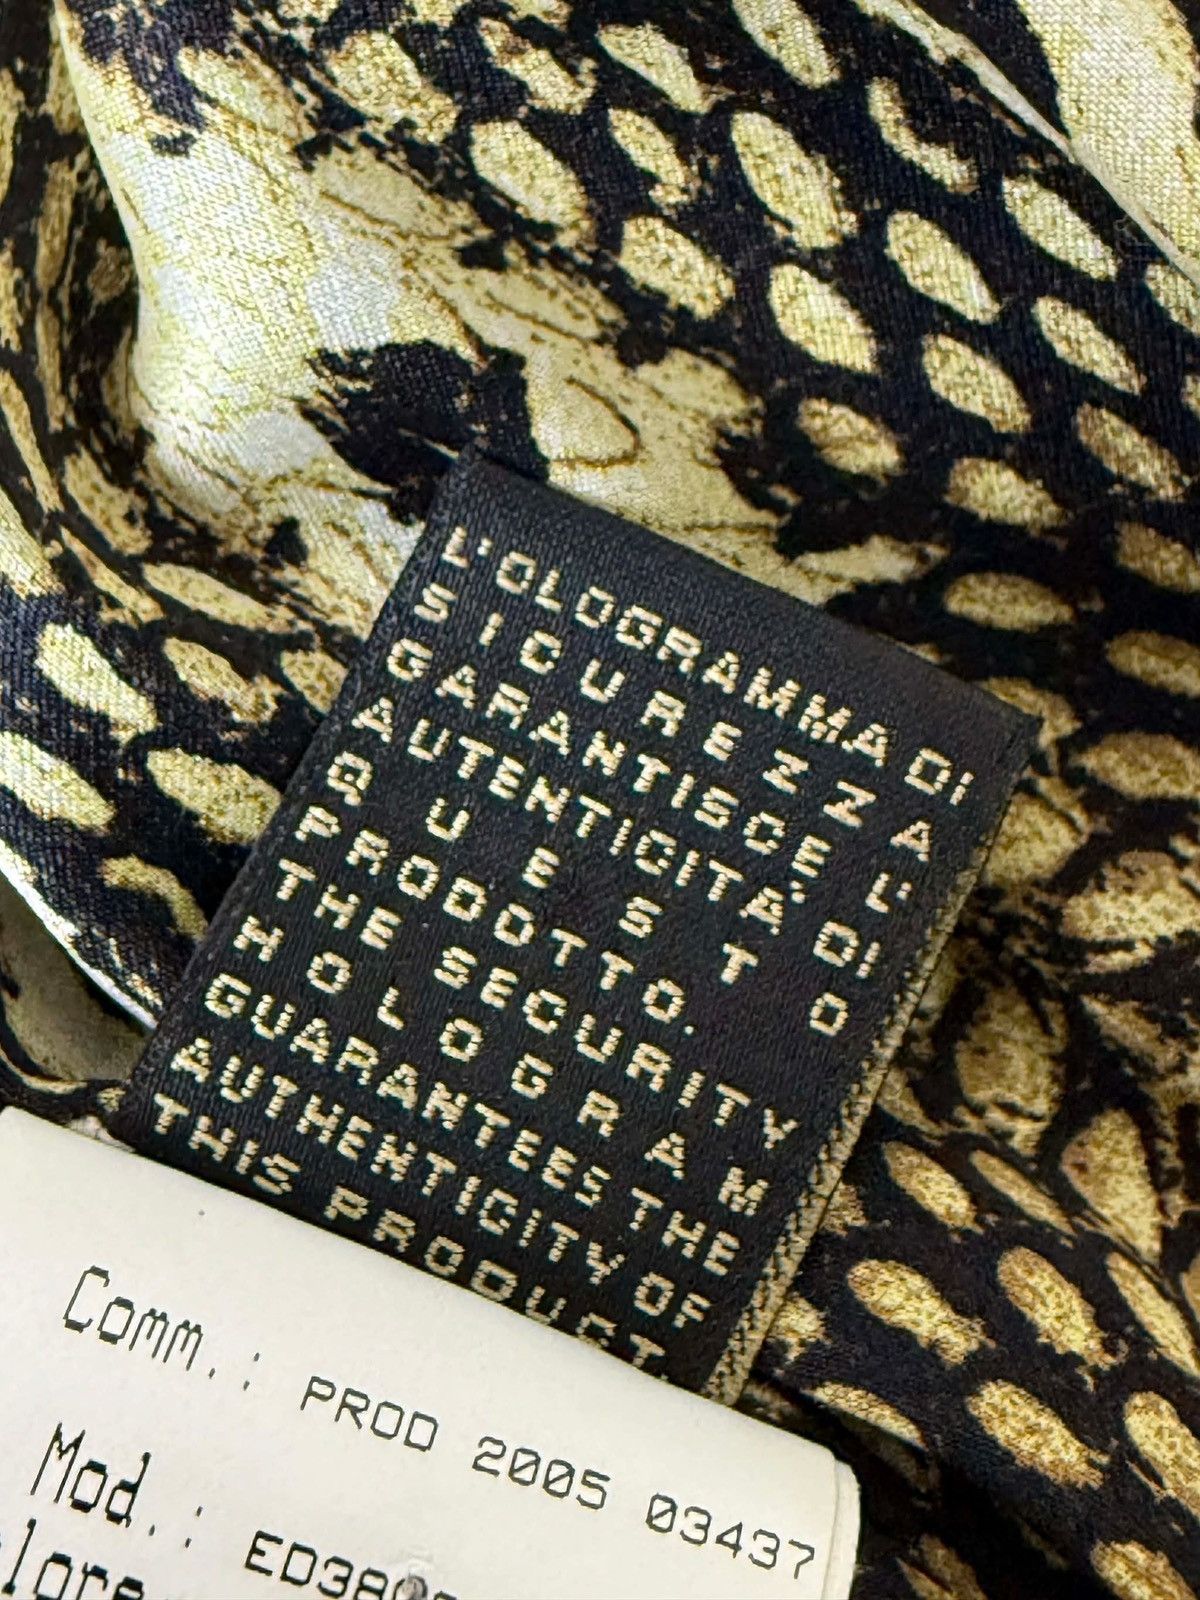 L'OLOGRAMMA DI
SICUREZZA
GARANTISCE L'
AUTENTICITA' DI
QUESTO
PRODOTTO.
THE SECURITY
HOLOGRAM
GUARANTEES THE
AUTHENTICITY OF
THIS PRODUCT.
Comm.: PROD 2005 03437
Mod.: